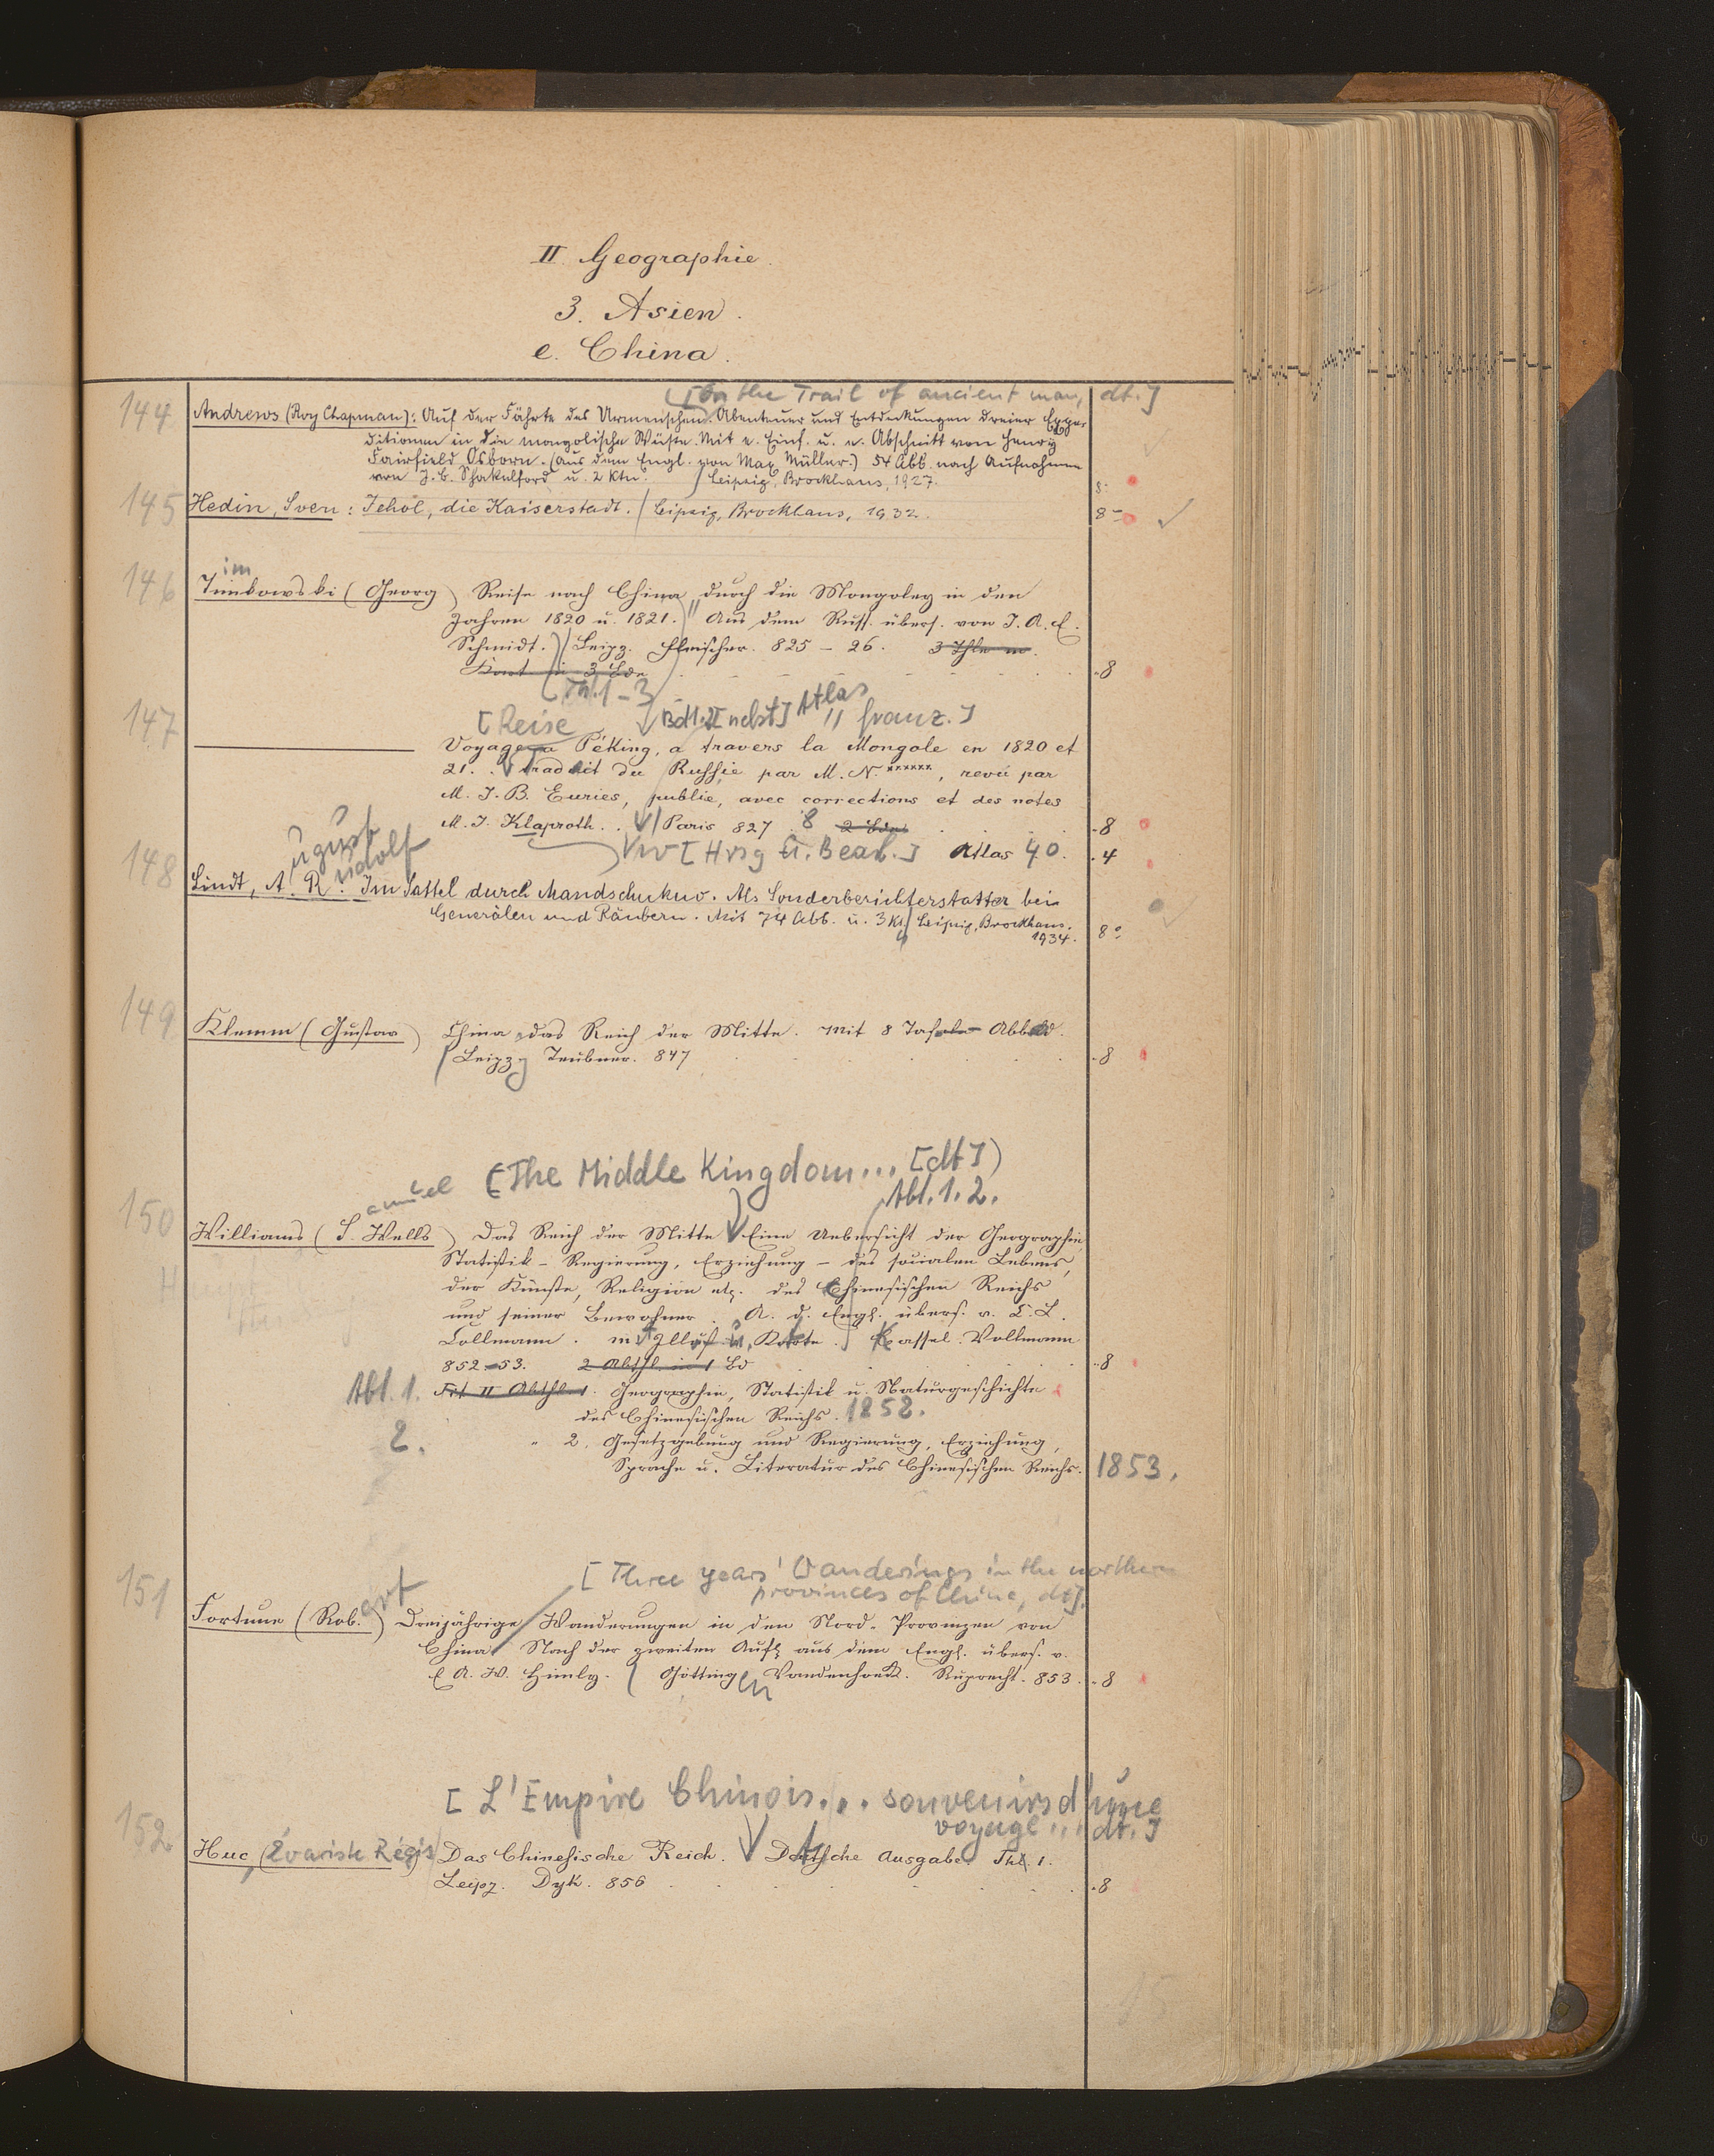 II Geographie.
3. Asien.
e. China.
[On the Trail of ancient man, dt.]
144 Andrews (Roy Chapman): Auf der Fährte des Urmenschen. Abenteuer und Entdeckungen dreier Expe-
ditionen in die mongolische Wüste. Mit e. Einf. u. e. Abschnitt von Henry
Fairfield Osborn. (Aus dem Engl. von Max Müller.) 54 Abb. nach Aufnahmen
von J. B. Shakelford u. 2 Ktn. Leipzig, Brockhaus, 1927. 8°
145 Hedin, Sven: Jehol, die Kaiserstadt. Leipzig, Brockhaus, 1932. 8°
im
146 Timkowski (Georg) Reise nach China durch die Mongoley in den
Jahren 1820 u. 1821. Aus dem Russ. übers. von J. A. E.
Schmidt. Leipz. Fleischer. 825 - 26. 3 Thle m.
Kart. in 3 Bde 8
Th. 1-3
147 [Reise Bd 1.2 [nebst] Atlas franz.]
Voyage a Péking, a travers la Mongole en 1820 et
21. traduit du Russie par M. N. ******, revü par
M. J. B. Euries, publie, avec corrections et des notes
M. J. Klaproth. Paris 827 8 2 Bde 8
[Hrsg u. Bearb.] Atlas 40. 4
ugust udolf
148 Lindt, A. R. Im Sattel durch Mandschukuo. Als Sonderberichterstatter bei
Generälen und Räubern. Mit 74 Abb. u. 3 Kt. Leipzig, Brockhaus.
1934. 8°
149 Klemm (Gustav) China das Reich der Mitte. Mit 8 Tafeln Abbild.
Leipzg Teubner. 847 8
amuel (The Middle Kingdom... [dt])
Abt. 1. 2.
150 Williams (S. Wells) Das Reich der Mitte Eine Uebersicht der Geographie,
Statistik - Regierung, Erziehung - des socialen Lebens,
der Künste, Religion etc. des Chinesischen Reichs
und seiner Bewohner. A. d. Engl. übers. v. C. L.
Collmann. m Illust u. Karte. Kassel. Vollmann
852-53. 2 Abthl. in 1 Bd 8
Abt. 1. II Abthl. 1. Geographie, Statistik u. Naturgeschichte
des Chinesischen Reichs. 1852.
2. " 2. Gesetzgebung und Regierung, Erziehung,
Sprache u. Literatur des Chinesischen Reichs. 1853.
[Three years' Wanderings in the northern
provinces of China, dt].
ert
151 Fortune (Rob.) Dreijährige Wanderungen in den Nord-Provinzen von
China. Nach der zweiten Aufl aus dem Engl. übers. v.
E A. W. Himly. Götting en Vandenhoeck. Ruprecht. 853. 8
[L'Empire Chinois... souvenirs d'une
voyage... dt.]
152. Huc, (Évariste Régis) Das Chinesische Reich. Deutsche Ausgabe. Thl. 1.
Leipz. Dyk. 856 8